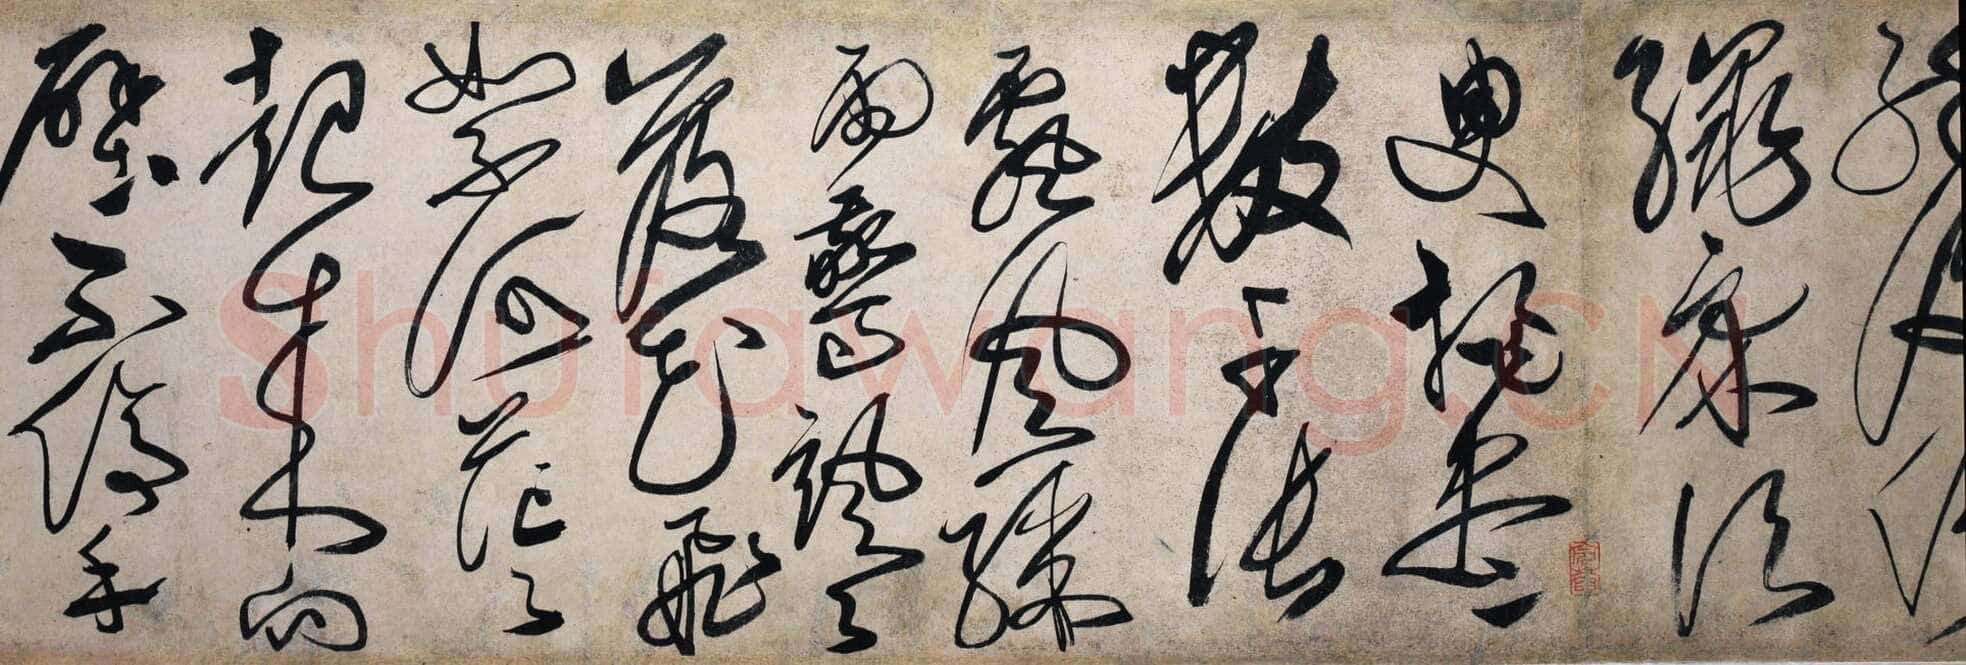 繩床須
臾掃盡
數千張
飄風驟
雨驚颯颯
落花飛
雪何茫茫
起來向
壁不停手
Shufawang.CN